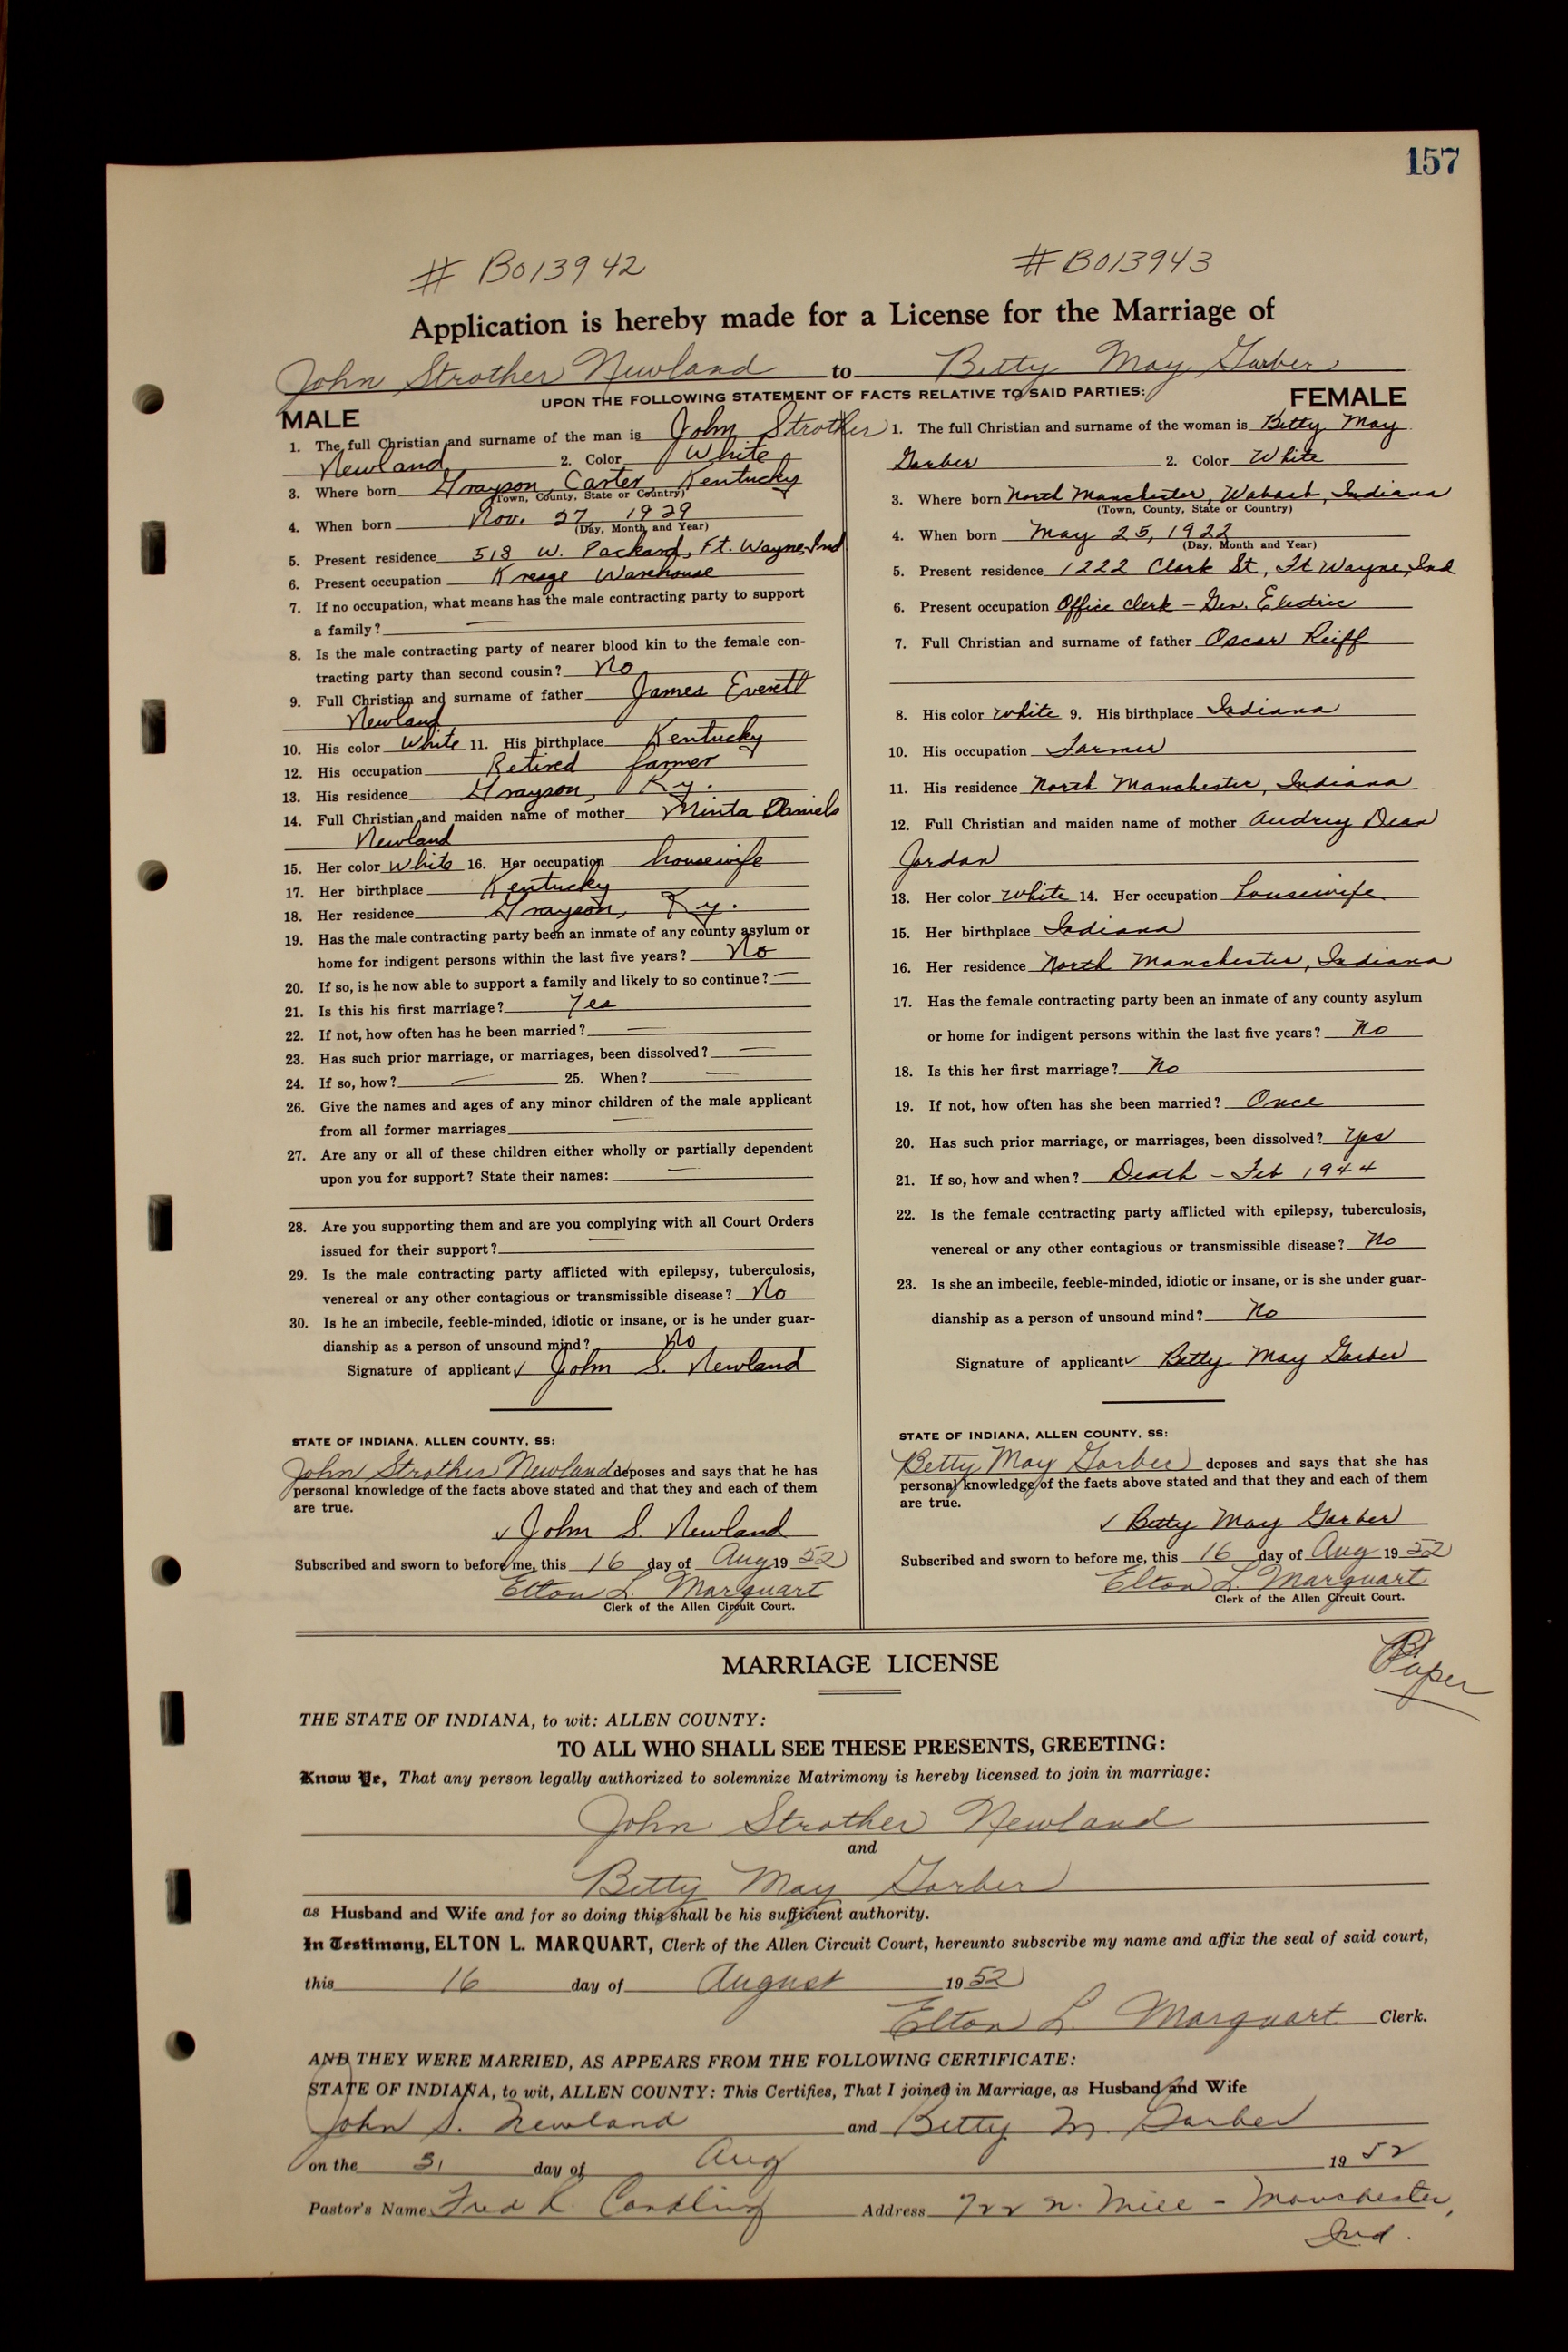 157
# B013942 # B013943
Application is hereby made for a License for the Marriage of
John Strother Newland to Betty May Garber
UPON THE FOLLOWING STATEMENT OF FACTS RELATIVE TO SAID PARTIES:
MALE
1. The full Christian and surname of the man is John Strother
Newland 2. Color White
3. Where born Grayson, Carter, Kentucky
(Town, County, State or Country)
4. When born Nov. 27 1929
(Day, Month and Year)
5. Present residence 518 W. Packard, Ft. Wayne, Ind
6. Present occupation Kresge Warehouse
7. If no occupation, what means has the male contracting party to support
a family? —
8. Is the male contracting party of nearer blood kin to the female con-
tracting party than second cousin? No
9. Full Christian and surname of father James Everett
Newland
10. His color White 11. His birthplace Kentucky
12. His occupation Retired farmer
13. His residence Grayson, Ky.
14. Full Christian and maiden name of mother Minta Daniels
Newland
15. Her color White 16. Her occupation housewife
17. Her birthplace Kentucky
18. Her residence Grayson, Ky.
19. Has the male contracting party been an inmate of any county asylum or
home for indigent persons within the last five years? No
20. If so, is he now able to support a family and likely to so continue? —
21. Is this his first marriage? Yes
22. If not, how often has he been married? —
23. Has such prior marriage, or marriages, been dissolved? —
24. If so, how? — 25. When? —
26. Give the names and ages of any minor children of the male applicant
from all former marriages —
27. Are any or all of these children either wholly or partially dependent
upon you for support? State their names: —
28. Are you supporting them and are you complying with all Court Orders
issued for their support? —
29. Is the male contracting party afflicted with epilepsy, tuberculosis,
venereal or any other contagious or transmissible disease? No
30. Is he an imbecile, feeble-minded, idiotic or insane, or is he under guar-
dianship as a person of unsound mind? No
Signature of applicant ✓ John S. Newland
STATE OF INDIANA, ALLEN COUNTY, SS:
John Strother Newland deposes and says that he has
personal knowledge of the facts above stated and that they and each of them
are true.
✓ John S. Newland
Subscribed and sworn to before me, this 16 day of Aug 19 52
Elton L. Marquart
Clerk of the Allen Circuit Court.
FEMALE
1. The full Christian and surname of the woman is Betty May
Garber 2. Color White
3. Where born North Manchester, Wabash, Indiana
(Town, County, State or Country)
4. When born May 25, 1922
(Day, Month and Year)
5. Present residence 1222 Clark St, Ft Wayne, Ind
6. Present occupation Office clerk - Gen. Electric
7. Full Christian and surname of father Oscar Reiff
8. His color White 9. His birthplace Indiana
10. His occupation Farmer
11. His residence North Manchester, Indiana
12. Full Christian and maiden name of mother Audrey Dean
Jordan
13. Her color White 14. Her occupation housewife
15. Her birthplace Indiana
16. Her residence North Manchester, Indiana
17. Has the female contracting party been an inmate of any county asylum
or home for indigent persons within the last five years? No
18. Is this her first marriage? No
19. If not, how often has she been married? Once
20. Has such prior marriage, or marriages, been dissolved? Yes
21. If so, how and when? Death - Feb 1944
22. Is the female contracting party afflicted with epilepsy, tuberculosis,
venereal or any other contagious or transmissible disease? No
23. Is she an imbecile, feeble-minded, idiotic or insane, or is she under guar-
dianship as a person of unsound mind? No
Signature of applicant ✓ Betty May Garber
STATE OF INDIANA, ALLEN COUNTY, SS:
Betty May Garber deposes and says that she has
personal knowledge of the facts above stated and that they and each of them
are true.
✓ Betty May Garber
Subscribed and sworn to before me, this 16 day of Aug 19 52
Elton L. Marquart
Clerk of the Allen Circuit Court.
MARRIAGE LICENSE
Paper
THE STATE OF INDIANA, to wit: ALLEN COUNTY:
TO ALL WHO SHALL SEE THESE PRESENTS, GREETING:
Know Ye, That any person legally authorized to solemnize Matrimony is hereby licensed to join in marriage:
John Strother Newland
and
Betty May Garber
as Husband and Wife and for so doing this shall be his sufficient authority.
In Testimony, ELTON L. MARQUART, Clerk of the Allen Circuit Court, hereunto subscribe my name and affix the seal of said court,
this 16 day of August 19 52
Elton L. Marquart Clerk.
AND THEY WERE MARRIED, AS APPEARS FROM THE FOLLOWING CERTIFICATE:
STATE OF INDIANA, to wit, ALLEN COUNTY: This Certifies, That I joined in Marriage, as Husband and Wife
John S. Newland and Betty M. Garber
on the 31 day of Aug 19 52
Pastor's Name Fred R. Address 722 N. Mill - Manchester,
Ind.